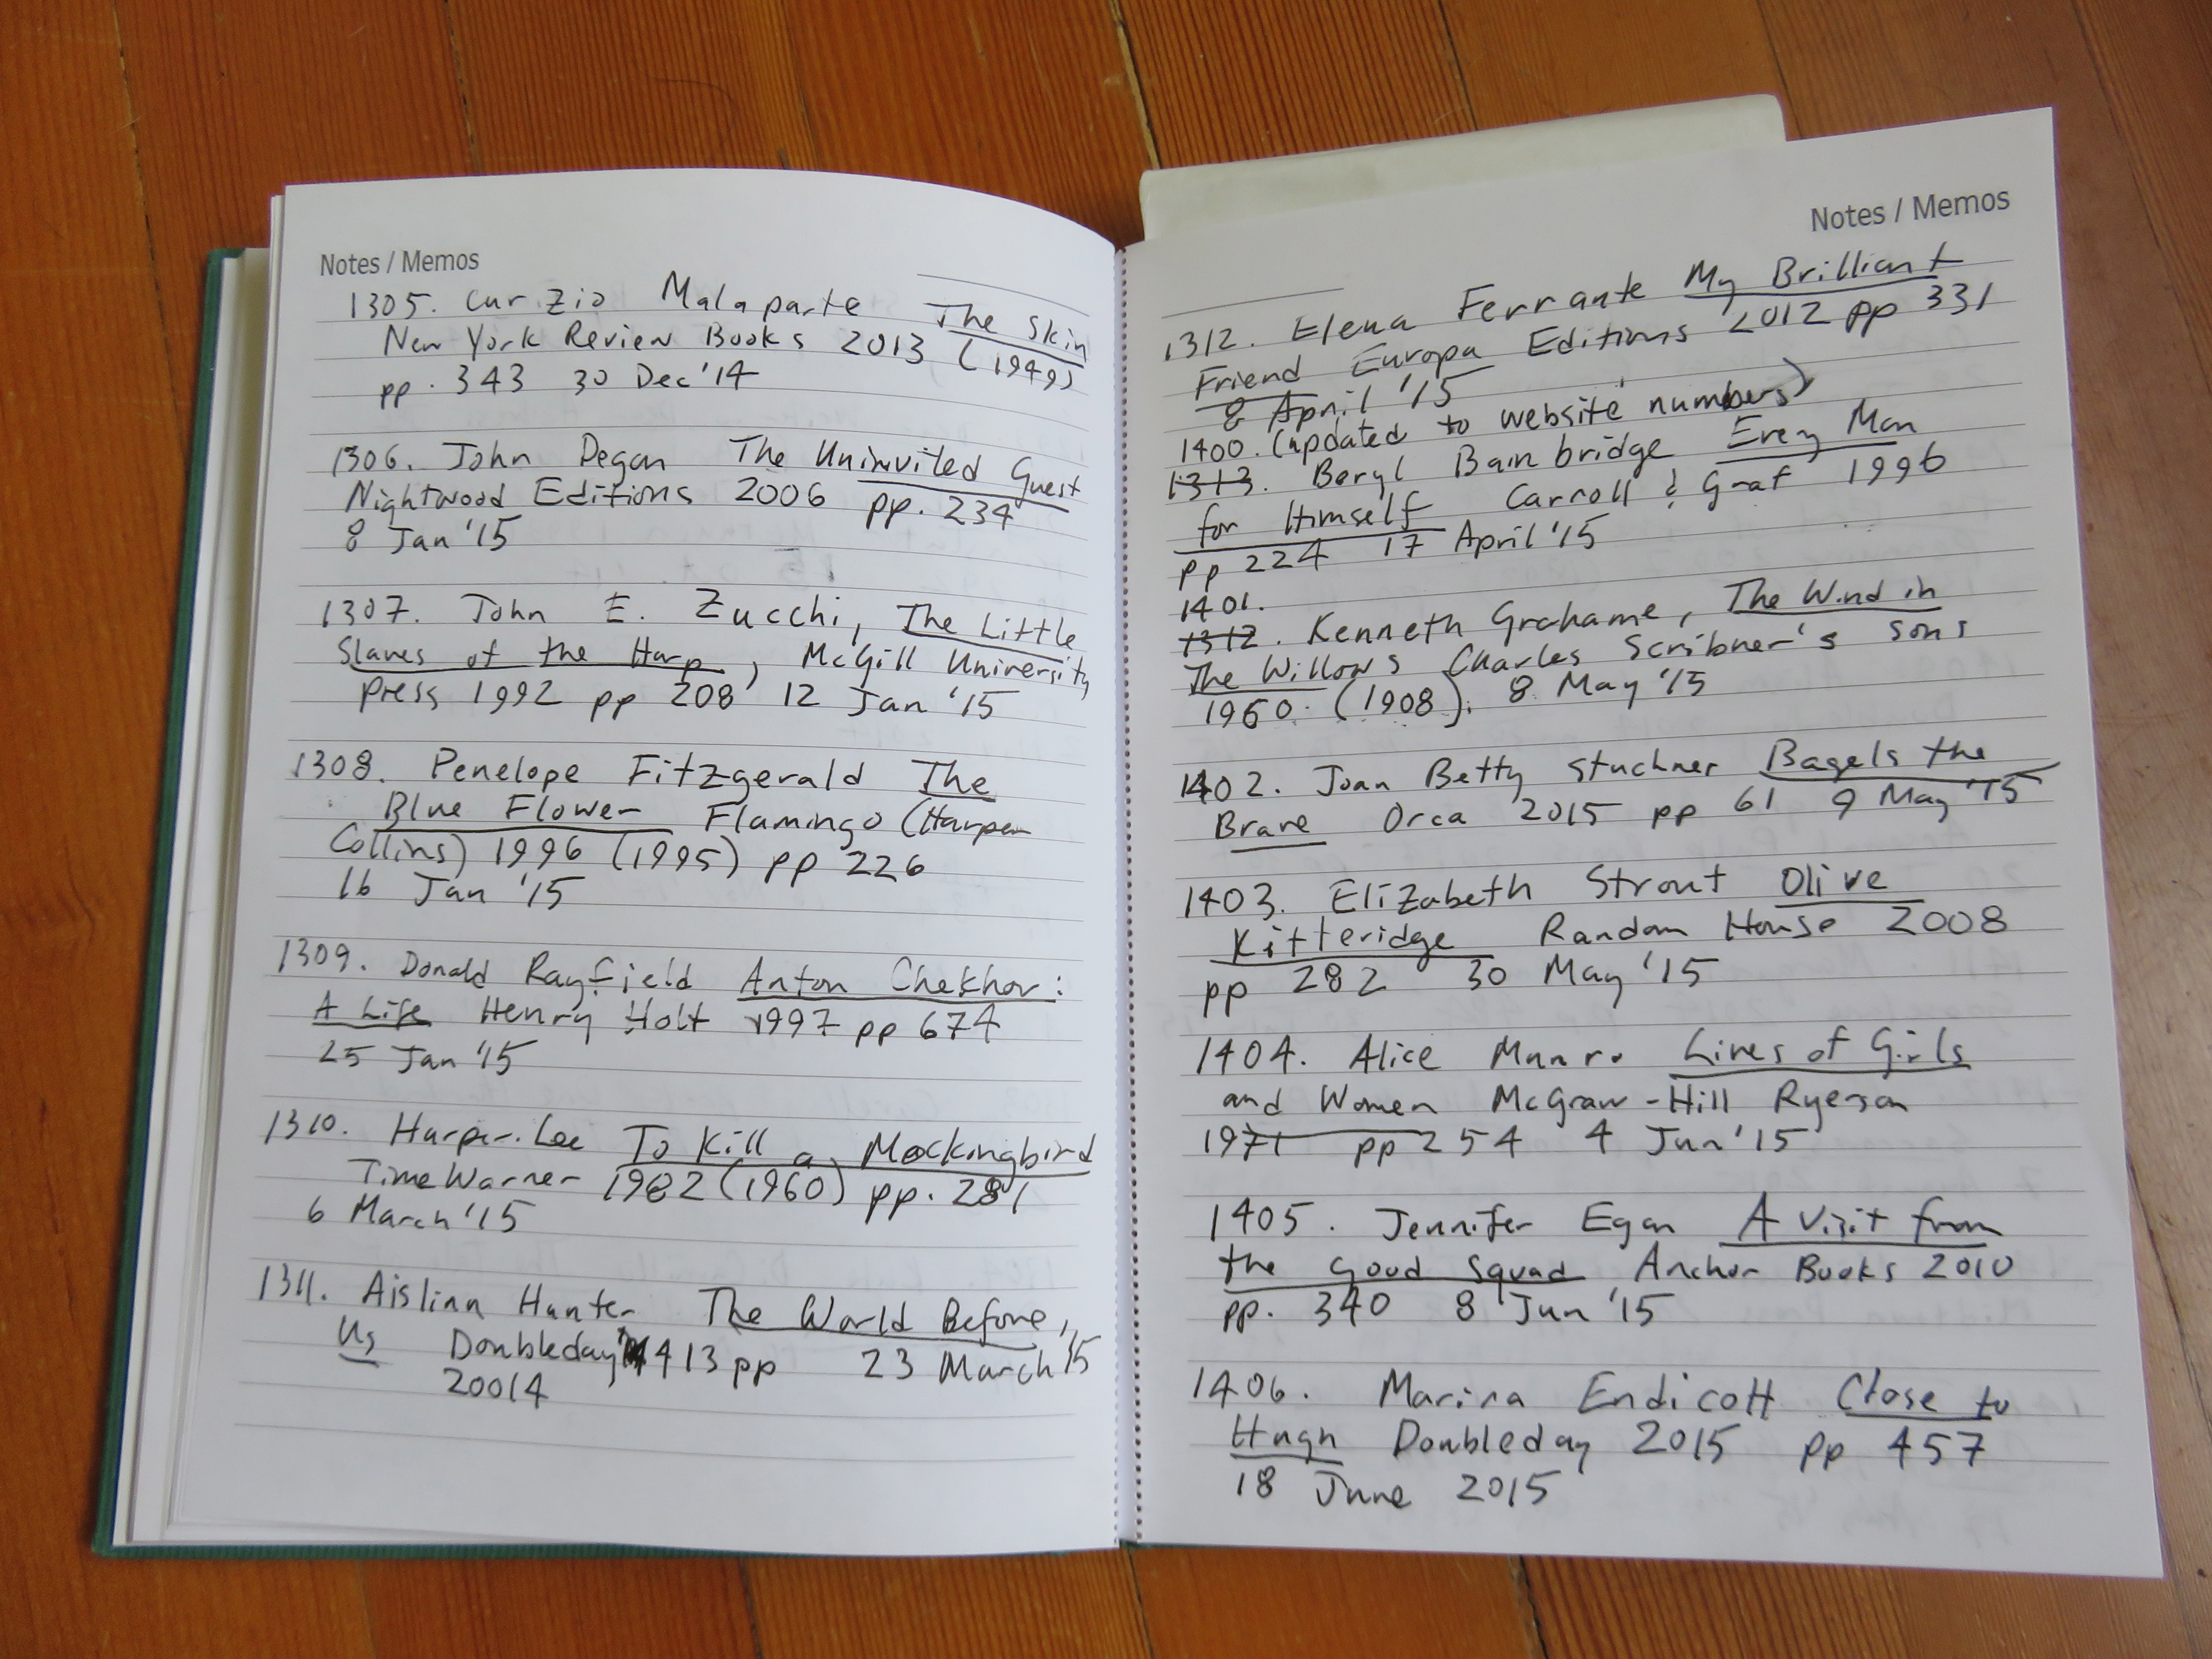 Notes / Memos
1305. Curzio Malaparte The Skin
New York Review Books 2013 (1949)
pp. 343 30 Dec '14
1306. John Degan The Uninvited Guest
Nightwood Editions 2006 pp. 234
8 Jan '15
1307. John E. Zucchi, The Little
Slaves of the Harp, McGill University
press 1992 pp 208 12 Jan '15
1308. Penelope Fitzgerald The
Blue Flower Flamingo (Harper
Collins) 1996 (1995) pp 226
16 Jan '15
1309. Donald Rayfield Anton Chekhov:
A Life Henry Holt 1997 pp 674
25 Jan '15
1310. Harper Lee To Kill a Mockingbird
Time Warner 1982 (1960) pp. 281
6 March '15
1311. Aislinn Hunter The World Before,
Us Doubleday 413 pp 23 March '15
20014
Notes / Memos
1312. Elena Ferrante My Brilliant
Friend Europa Editions 2012 pp 331
8 April '15
1400. (updated to website numbers)
1313. Beryl Bainbridge Every Man
for Himself Carroll & Graf 1996
pp 224 17 April '15
1401.
1312. Kenneth Grahame, The Wind in
The Willows Charles Scribner's Sons
1960. (1908). 8 May '15
1402. Joan Betty Stuchner Bagels the
Brave Orca 2015 pp 61 9 May '15
1403. Elizabeth Strout Olive
Kitteridge Random House 2008
pp 282 30 May '15
1404. Alice Munro Lives of Girls
and Women McGraw-Hill Ryerson
1971 pp 254 4 Jun '15
1405. Jennifer Egan A Visit from
the Good Squad Anchor Books 2010
pp. 340 8 Jun '15
1406. Marina Endicott Close to
Hugh Doubleday 2015 pp 457
18 June 2015